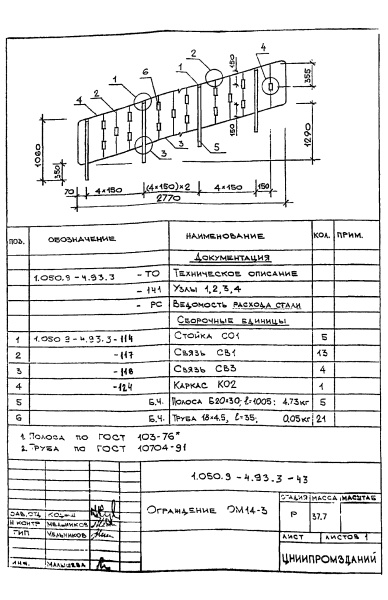 2
1
6
1
150
4
4
2
355
1060
350
150
1290
3
3
5
70
4×150
(4×150)×2
4×150
150
2770
ПОЗ. ОБОЗНАЧЕНИЕ НАИМЕНОВАНИЕ КОЛ. ПРИМ.
ДОКУМЕНТАЦИЯ
1.050.9-4.93.3 -ТО ТЕХНИЧЕСКОЕ ОПИСАНИЕ
-141 УЗЛЫ 1,2,3,4
-РС ВЕДОМОСТЬ РАСХОДА СТАЛИ
СБОРОЧНЫЕ ЕДИНИЦЫ
1 1.050.9-4.93.3-114 СТОЙКА СО1 5
2 -117 СВЯЗЬ СВ1 13
3 -118 СВЯЗЬ СВ3 4
4 -124 КАРКАС КО2 1
5 Б.Ч. ПОЛОСА Б20×30; ℓ=1005; 4.73кг 5
6 Б.Ч. ТРУБА 18×4.5, ℓ=35; 0,05кг 21
1. ПОЛОСА ПО ГОСТ 103-76*
2. ТРУБА ПО ГОСТ 10704-91
1.050.9-4.93.3-43
ЗАВ.ОТД.
Н КОНТР МЕЛЬНИКОВ
ГИП МЕЛЬНИКОВ
ИНЖ. МАЛЫШЕВА
ОГРАЖДЕНИЕ ОМ14-3
СТАДИЯ МАССА МАСШТАБ
Р 37.7
ЛИСТ ЛИСТОВ 1
ЦНИИПРОМЗДАНИЙ